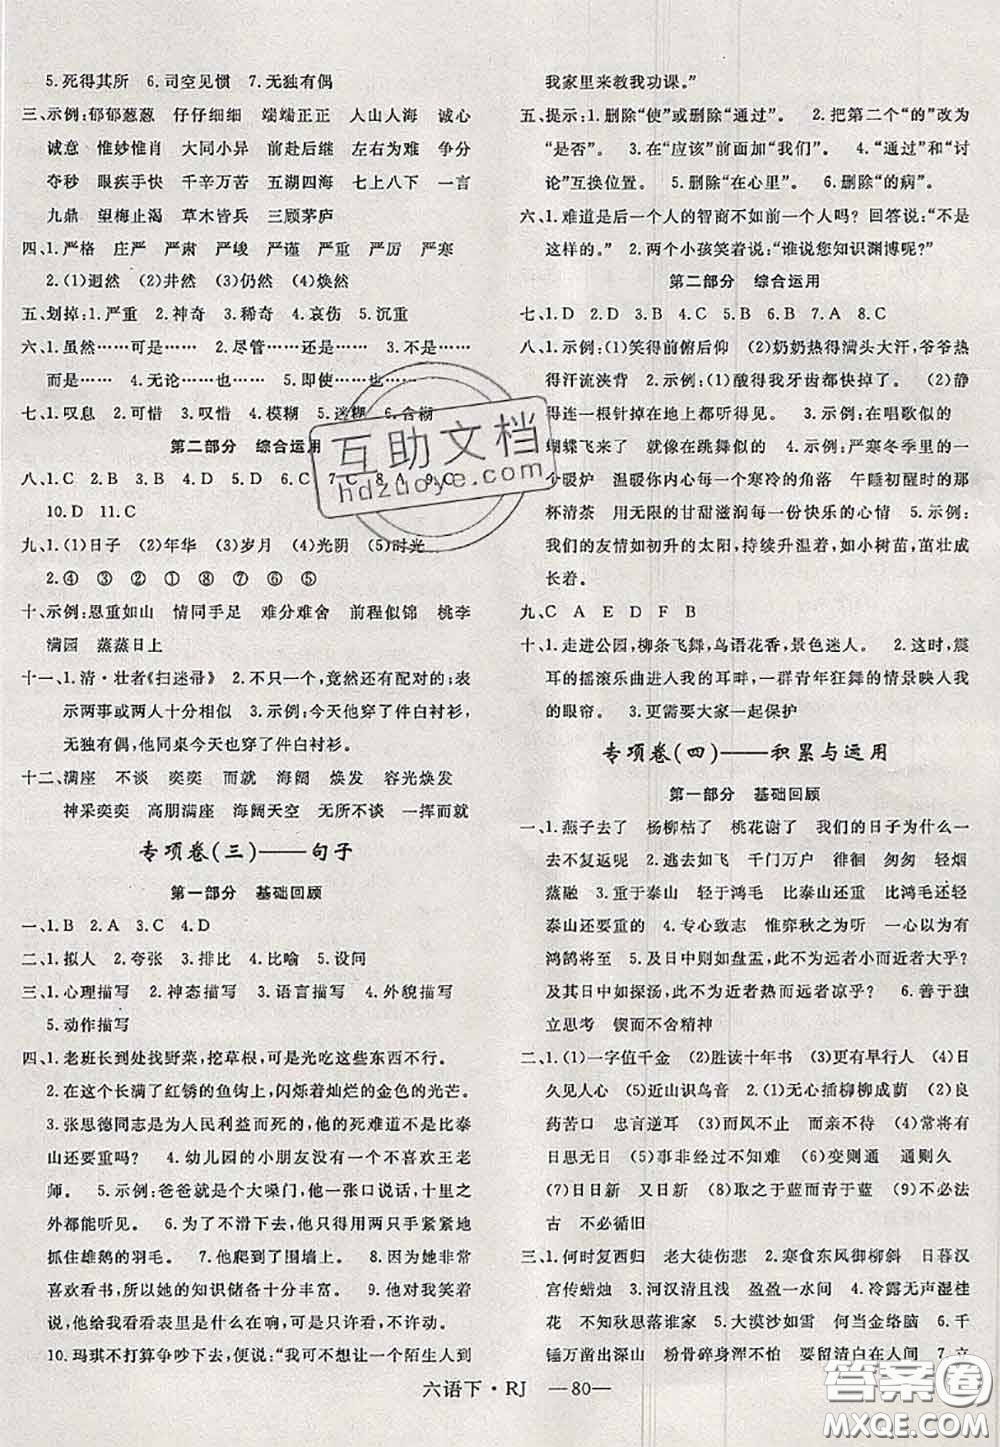 5.死得其所 6.司空见惯 7.无独有偶
三、示例:郁郁葱葱 仔仔细细 端端正正 人山人海 诚心
诚意 惟妙惟肖 大同小异 前赴后继 左右为难 争分
夺秒 眼疾手快 千辛万苦 五湖四海 七上八下 一言
九鼎 望梅止渴 草木皆兵 三顾茅庐
四、1.严格 庄严 严肃 严峻 严谨 严重 严厉 严寒
2.(1)迥然 (2)井然 (3)仍然 (4)依然
五、划掉:1.严重 2.神奇 3.稀奇 4.哀伤 5.沉重
六、1.虽然……可是…… 2.尽管……还是…… 3.不是……
而是…… 4.无论……也…… 5.即使……也……
七、1.叹息 2.可惜 3.叹惜 4.模糊 5.迷糊 6.含糊
第二部分 综合运用
八、1.C 2.D 3.C 4.B 5.C 6.C 7.C 8.A 9.C
10.D 11.C
九、1.(1)日子 (2)年华 (3)岁月 (4)光阴 (5)时光
2.④ ③ ② ① ⑧ ⑦ ⑥ ⑤
十、示例:恩重如山 情同手足 难分难舍 前程似锦 桃李
满园 蒸蒸日上
十一、1.清·壮者《扫迷帚》 2.不只一个,竟然还有配对的;表
示两事或两人十分相似 3.示例:今天他穿了件白衬衫,
无独有偶,他同桌今天也穿了件白衬衫。
十二、满座 不谈 奕奕 而就 海阔 焕发 容光焕发
神采奕奕 高朋满座 海阔天空 无所不谈 一挥而就
专项卷(三)——句子
第一部分 基础回顾
一、1.B 2.A 3.C 4.D
二、1.拟人 2.夸张 3.排比 4.比喻 5.设问
三、1.心理描写 2.神态描写 3.语言描写 4.外貌描写
5.动作描写
四、1.老班长到处找野菜,挖草根,可是光吃这些东西不行。
2.在这个长满了红锈的鱼钩上,闪烁着灿烂的金色的光芒。
3.张思德同志是为人民利益而死的,他的死难道不是比泰
山还要重吗? 4.幼儿园的小朋友没有不喜欢王老
师。 5.示例:爸爸就是个大嗓门,他一张口说话,十里之
外都能听见。 6.为了不滑下去,他只得用两只手紧紧地
抓住雄鹅的羽毛。 7.他爬到了围墙上。 8.因为她非常
喜欢看书,所以她的知识储备十分丰富。 9.他严肃地告诉
我,他给我看看表是可以的,但是只许看,不许动。
10.玛琪不打算争吵下去,便说:“我可不想让一个陌生人到
我家里来教我功课。”
五、提示:1.删除“使”或删除“通过”。 2.把第二个“的”改为
“是否”。 3.在“应该”前面加“我们”。 4.“通过”和“讨
论”互换位置。 5.删除“在心里”。 6.删除“的病”。
六、1.难道是后一个人的智商不如前一个人吗? 回答说:“不是
这样的。” 2.两个小孩笑着说:“谁说您知识渊博呢?”
第二部分 综合运用
七、1.D 2.D 3.D 4.B 5.C 6.D 7.A 8.C
八、1.示例:(1)笑得前俯后仰 (2)奶奶热得满头大汗,爷爷热
得汗流浃背 2.示例:(1)酸得我牙齿都快掉了。 (2)静
得连一根针掉在地上都听得见。 3.示例:在唱歌似的
蝴蝶飞来了 就像在跳舞似的 4.示例:严寒冬季里的一
个暖炉 温暖你内心每一个寒冷的角落 午睡初醒时的一
杯清茶 用无限的甘甜滋润每一份快乐的心情 5.示例:
我们的友情如初升的太阳,持续升温着,如小树苗,茁壮成
长着。
九、C A E D F B
十、1.走进公园,柳条飞舞,鸟语花香,景色迷人。 2.这时,震
耳的摇滚乐曲进入我的耳畔,一群青年狂舞的情景映入我
的眼帘。 3.更需要大家一起保护
专项卷(四)——积累与运用
第一部分 基础回顾
一、1.燕子去了 杨柳枯了 桃花谢了 我们的日子为什么一
去不复返呢 2.去如飞 千门万户 徘徊 匆匆 轻烟
蒸融 3.重于泰山 轻于鸿毛 比泰山还重 比鸿毛还轻
泰山还要重的 4.专心致志 惟弈秋之为听 一心以为有
鸿鹄将至 5.及日中则如盘盂 沧沧凉凉
及其日中如探汤,此不为近者热而远者凉乎? 6.善于独
立思考 锲而不舍精神
二、1.(1)一字值千金 (2)胜读十年书 (3)更有早行人 (4)日
久见人心 (5)近山识鸟音 2.(1)无心插柳柳成荫 (2)良
药苦口 忠言逆耳 (3)而风不止 (4)常将有
日思无日 (5)事非经过不知难 (6)变则通 通则久
(7)日日新 又日新 (8)取之于蓝而青于蓝 (9)不必法
古 不必循旧
三、1.何时复西归 老大徒伤悲 2.寒食东风御柳斜 日暮汉
宫传蜡烛 3.河汉清且浅 盈盈一水间 4.冷露无声湿桂
花 不知秋思落谁家 5.大漠沙如雪 何当金络脑 6.千
锤万凿出深山 粉骨碎身浑不怕 要留清白在人间 7.立
六语下·RJ —80—
互助文档
hdzuoye.com
答案圈
MXQE.COM